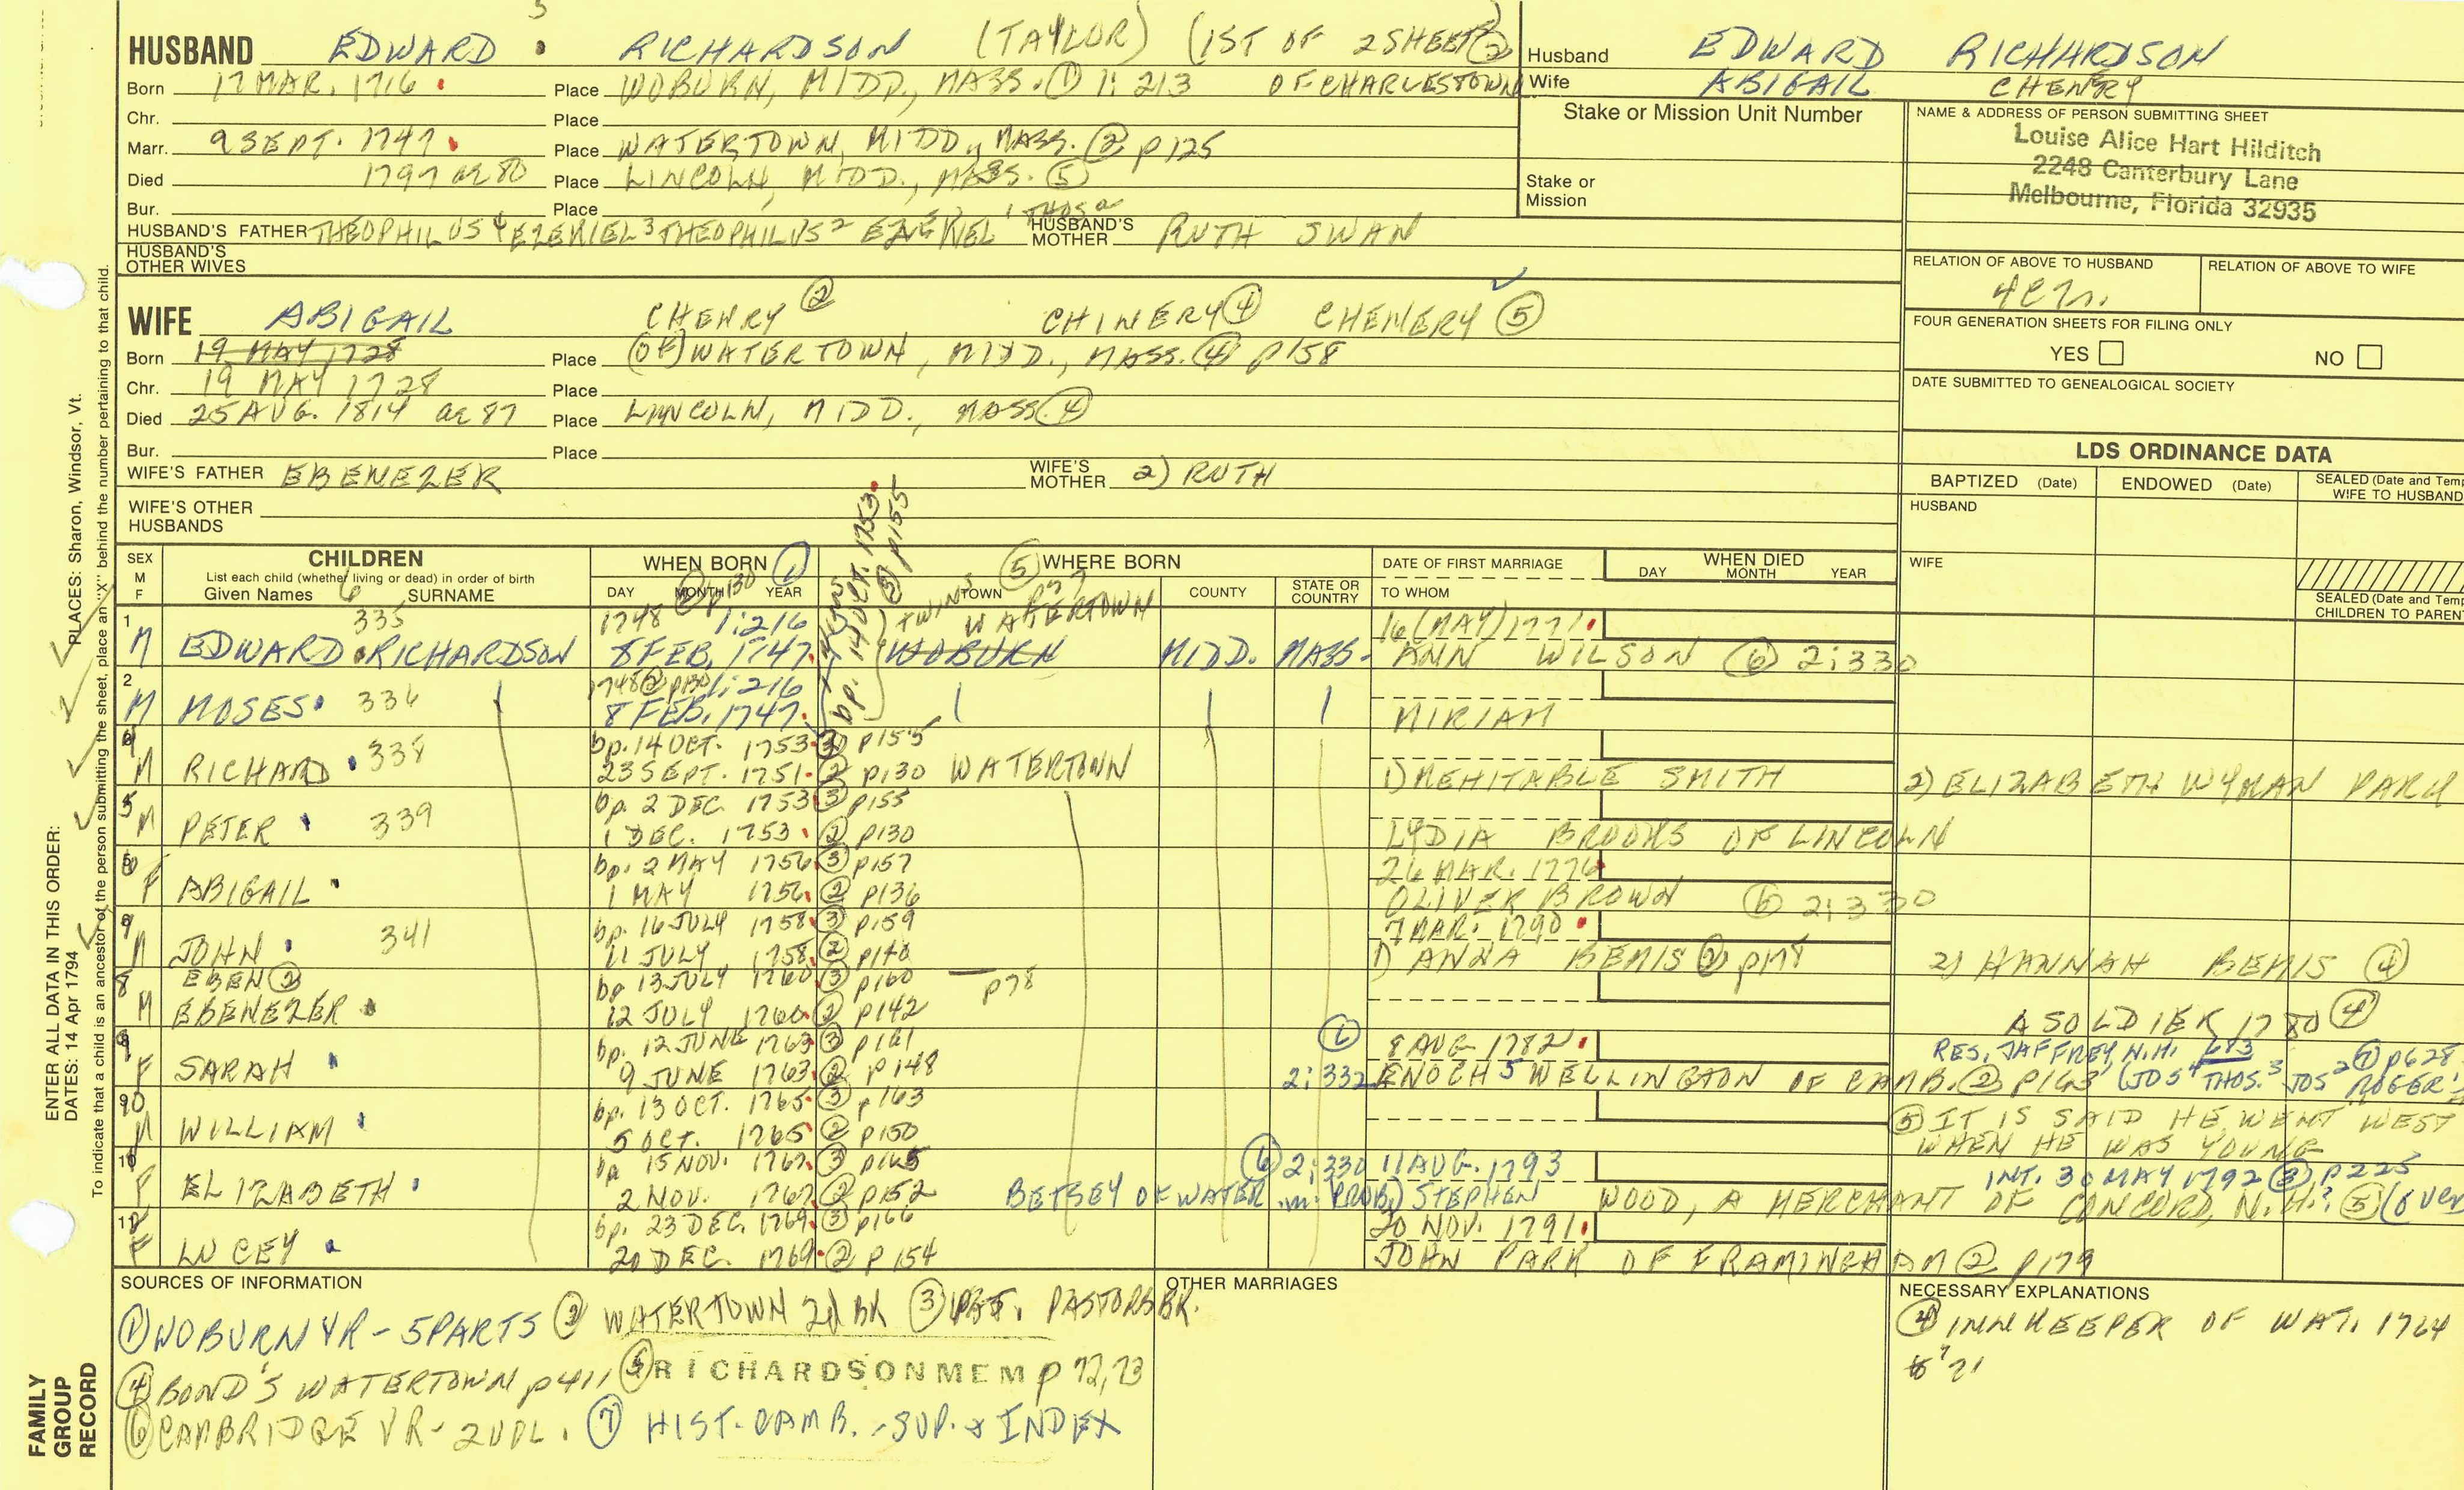 HUSBAND EDWARD 5 RICHARDSON (TAYLOR) (1ST OF 2 SHEETS) ②
Born 17 MAR. 1716 Place WOBURN, MIDD., MASS. ① 1:213 OF CHARLESTOWN
Chr. Place
Marr. 9 SEPT. 1747 Place WATERTOWN, MIDD., MASS. ② p125
Died 1797 ae 80 Place LINCOLN, MIDD., MASS. ⑤
Bur. Place
HUSBAND'S FATHER THEOPHILUS 4 EZEKIEL 3 THEOPHILUS 2 EZEKIEL 1 THOS a HUSBAND'S MOTHER RUTH SWAN
HUSBAND'S OTHER WIVES
Husband EDWARD RICHARDSON
Wife ABIGAIL CHENERY
Stake or Mission Unit Number
Stake or Mission
NAME & ADDRESS OF PERSON SUBMITTING SHEET
Louise Alice Hart Hilditch
2248 Canterbury Lane
Melbourne, Florida 32935
RELATION OF ABOVE TO HUSBAND
RELATION OF ABOVE TO WIFE
FOUR GENERATION SHEETS FOR FILING ONLY
YES NO
DATE SUBMITTED TO GENEALOGICAL SOCIETY
WIFE ABIGAIL CHENRY ② CHINERY ④ CHENERY ⑤
Born 19 MAY 1728 Place (OF) WATERTOWN, MIDD., MASS. ④ p158
Chr. 19 MAY 1728 Place
Died 25 AUG. 1814 ae 87 Place LINCOLN, MIDD., MASS. ④
Bur. Place
WIFE'S FATHER EBENEZER WIFE'S MOTHER 2) RUTH
WIFE'S OTHER HUSBANDS
LDS ORDINANCE DATA
BAPTIZED (Date) ENDOWED (Date) SEALED (Date and Temp WIFE TO HUSBAND
HUSBAND
WIFE
SEALED (Date and Temp CHILDREN TO PAREN
SEX M F
CHILDREN
List each child (whether living or dead) in order of birth
Given Names 6 SURNAME
WHEN BORN ①
DAY MONTH YEAR
② p130
⑤ WHERE BORN
TOWN COUNTY STATE OR COUNTRY
DATE OF FIRST MARRIAGE
TO WHOM
WHEN DIED
DAY MONTH YEAR
bp. 14 OCT. 1753
③ p155
1 335 1748 1:216 TWINS WATERTOWN 16 (MAY) 1771
M EDWARD RICHARDSON 8 FEB. 1747 WOBURN MIDD. MASS. ANN WILSON ⑥ 2:330
2 1748 ② p130 1:216
M MOSES 336 8 FEB. 1747 MIRIAM
4 bp. 14 OCT. 1753 ③ p155
M RICHARD 338 23 SEPT. 1751 ② p130 WATERTOWN 1) MEHITABLE SMITH 2) ELIZABETH WYMAN PARK
5 bp. 2 DEC. 1753 ③ p155
M PETER 339 1 DEC. 1753 ② p130 LYDIA BROOKS OF LINCOLN
6 bp. 2 MAY 1756 ③ p157 26 MAR. 1776
F ABIGAIL 1 MAY 1756 ② p136 OLIVER BROWN ⑥ 2:330
7 bp. 16 JULY 1758 ③ p159 7 MAR. 1790
M JOHN 341 11 JULY 1758 ② p140 1) ANNA BEMIS ② p178 2) HANNAH BEMIS ④
8 EBEN ② bp 13 JULY 1760 ③ p160 p78
M EBENEZER 12 JULY 1760 ② p142 A SOLDIER 1780 ④
9 bp. 12 JUNE 1763 ③ p161 ⑥ 8 AUG 1782 RES. JAFFREY, N.H. 683 ⑦ p628
F SARAH 9 JUNE 1763 ② p148 2:332 ENOCH 5 WELLINGTON OF CAMB. ② p163 (JOS 4 THOS. 3 JOS 2 ROGER 1
10 bp. 13 OCT. 1765 ③ p163 ⑤ IT IS SAID HE WENT WEST
M WILLIAM 5 OCT. 1765 ② p150 WHEN HE WAS YOUNG
bp 15 NOV. 1767 ③ p165 ⑥ 2:330 11 AUG. 1793 INT. 30 MAY 1792 ③ p225
F ELIZABETH 2 NOV. 1767 ② p152 BETSEY OF WATER. m. (PROB.) STEPHEN WOOD, A MERCHANT OF CONCORD, N.H.? ⑤ (over
bp. 23 DEC. 1769 ③ p166 20 NOV. 1791
F LUCEY 20 DEC. 1769 ② p154 JOHN PARK OF FRAMINGHAM ② p179
SOURCES OF INFORMATION
① WOBURN VR - 5 PARTS ② WATERTOWN 2d BK ③ PASTORS BK.
④ BOND'S WATERTOWN p411 ⑤ RICHARDSON MEM p 72,73
⑥ CAMBRIDGE VR - 2 VOL. ⑦ HIST. CAMB. - SUP. & INDEX
OTHER MARRIAGES
NECESSARY EXPLANATIONS
④ INNKEEPER OF WAT. 1764
'71
ENTER ALL DATA IN THIS ORDER:
DATES: 14 Apr 1794
PLACES: Sharon, Windsor, Vt.
To indicate that a child is an ancestor of the person submitting the sheet, place an "X" behind the number pertaining to that child.
FAMILY
GROUP
RECORD